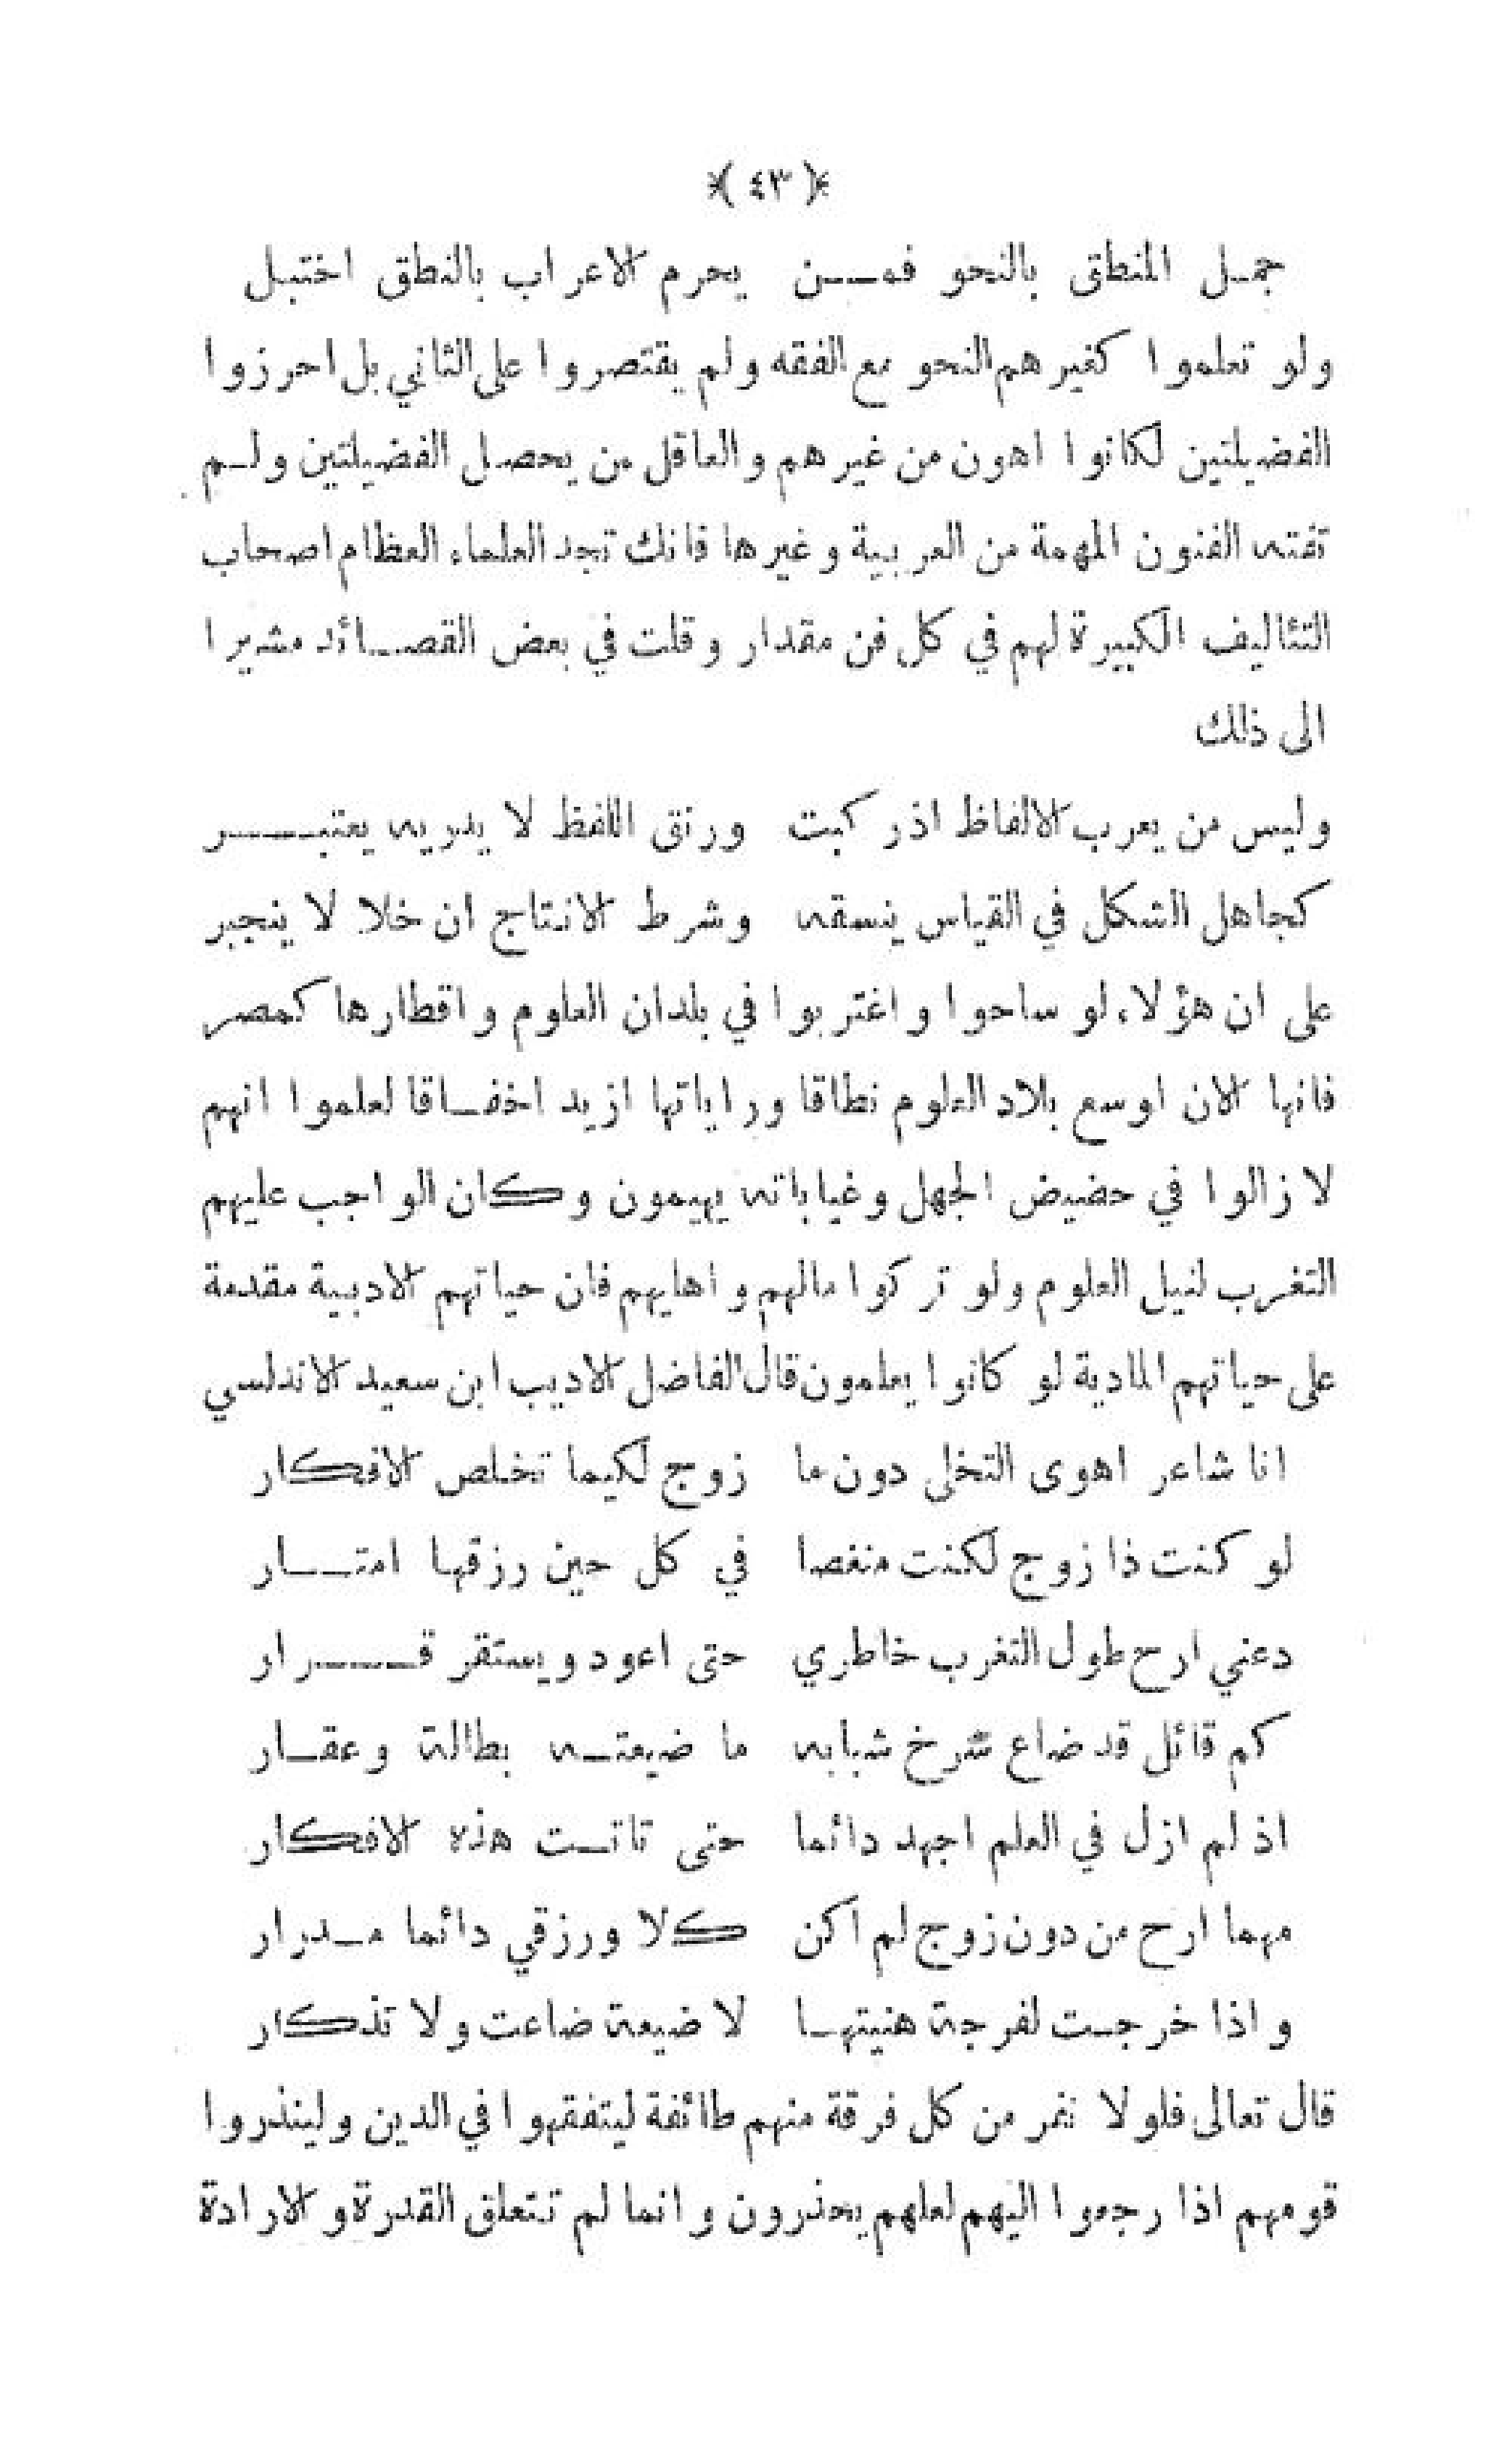 ﴿ ٤٣ ﴾
جمل المنطق بالنحو فمن يحرم الاعراب بالنطق اختبل
ولو تعلموا كغيرهم النحو مع الفقه ولم يقتصروا على الثاني بل احرزوا
الفضيلتين لكانوا اهون من غيرهم والعاقل من يحصل الفضيلتين ولم
تفته الفنون المهمة من العربية وغيرها فانك تجد العلماء العظام اصحاب
التئاليف الكبيرة لهم في كل فن مقدار وقلت في بعض القصائد مشيرا
الى ذلك
وليس من يعرب الالفاظ اذ ركبت ورتق اللفظ لا يدريه يعتبر
كجاهل الشكل في القياس ينسقه وشرط الانتاج ان خلا لا ينجبر
على ان هؤلاء لو ساحوا واغتربوا في بلدان العلوم واقطارها كمصر
فانها الان اوسع بلاد العلوم نطاقا وراياتها ازيد اخفاقا لعلموا انهم
لا زالوا في حضيض الجهل وغياباته يهيمون وكان الواجب عليهم
التغرب لنيل العلوم ولو تركوا مالهم واهليهم فان حياتهم الادبية مقدمة
على حياتهم المادية لو كانوا يعلمون قال الفاضل الاديب ابن سعيد الاندلسي
انا شاعر اهوى التخلى دون ما زوج لكيما تخلص الافكار
لو كنت ذا زوج لكنت منغصا في كل حين رزقها امتار
دعني ارح طول التغرب خاطري حتى اعود ويستقر قرار
كم قائل قد ضاع شرخ شبابه ما ضيعته بطالة وعقار
اذ لم ازل في العلم اجهد دائما حتى تاتت هذه الافكار
مهما ارح من دون زوج لم اكن كلا ورزقي دائما مدرار
واذا خرجت لفرجة هنيتها لا ضيعة ضاعت ولا تذكار
قال تعالى فلولا نفر من كل فرقة منهم طائفة ليتفقهوا في الدين ولينذروا
قومهم اذا رجعوا اليهم لعلهم يحذرون وانما لم تتعلق القدرة والارادة